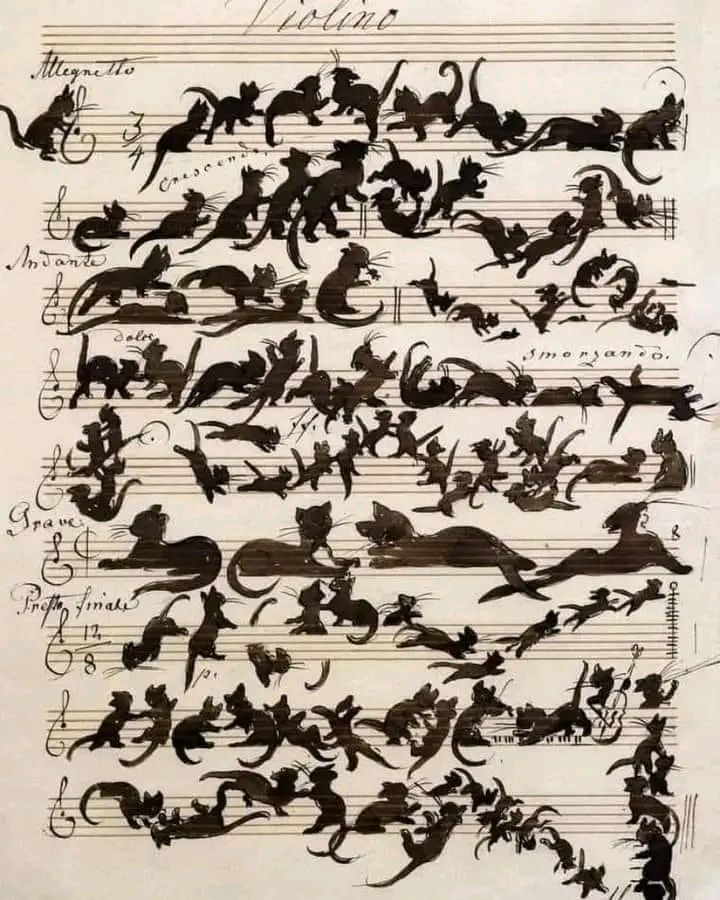 Violino
Allegretto
3
4
crescendo.
Andante
dolce
smorzando.
ff.
Grave
8
Presto finale
12
8
p.